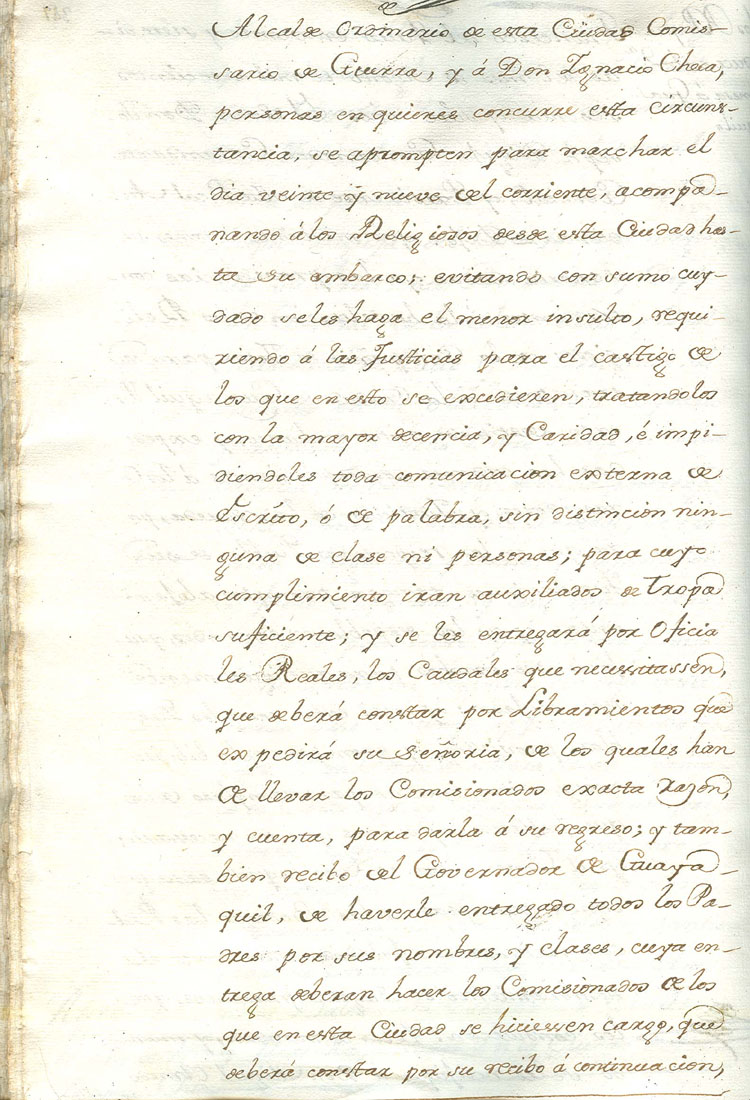 Alcalde Ordinario de esta Ciudad Comis-
sario de Guerra, y á Don Ignacio Checa,
personas en quienes concurre esta circuns-
tancia, se aprompten para marchar el
dia veinte ÿ nueve del corriente, acompa-
nando álos Religiosos desde esta Ciudad has-
ta su embarco; evitando con sumo cuy-
dado seles haga el menor insulto, requi-
riendo á las Justicias para el castigo de
los que en esto se excedieren, tratandolos
con la mayor decencia, y Caridad, é impi-
diendoles toda comunicacion externa de
Escrito, ó de palabra, sin distincion nin-
guna de clase ni personas; para cuyo
cumplimiento iran auxiliados de Tropa
suficiente; y se les entregará por Oficia
les Reales, los Caudales que necessitassen,
que deberá constar por Libramientos que
expedirá su Señoria, de los quales han
de llevar los Comisionados exacta razon,
y cuenta, para darla á su regreso; y tam-
bien recibo del Governador de Guaya-
quil, de haverle entregado todos los Pa-
dres por sus nombres, y clases, cuya en-
trega deberan hacer los Comisionados de los
que en esta Ciudad se hiciessen cargo, que
deberá constar por su recibo á continuacion,